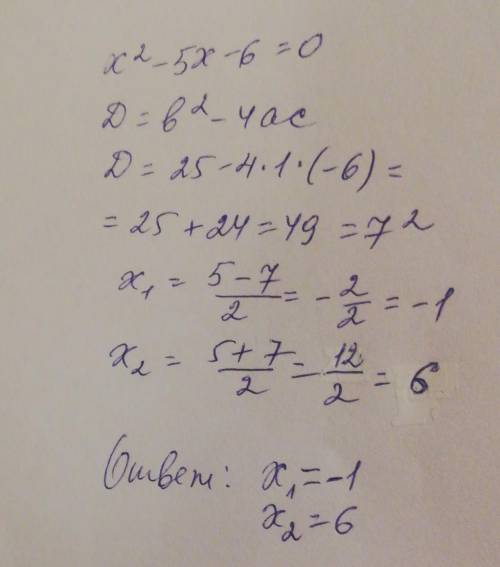 x² - 5x - 6 = 0
D = b² - 4ac
D = 25 - 4·1·(-6) =
= 25 + 24 = 49 = 7²
x₁ = (5-7)/2 = -2/2 = -1
x₂ = (5+7)/2 = 12/2 = 6
Ответ: x₁ = -1
x₂ = 6